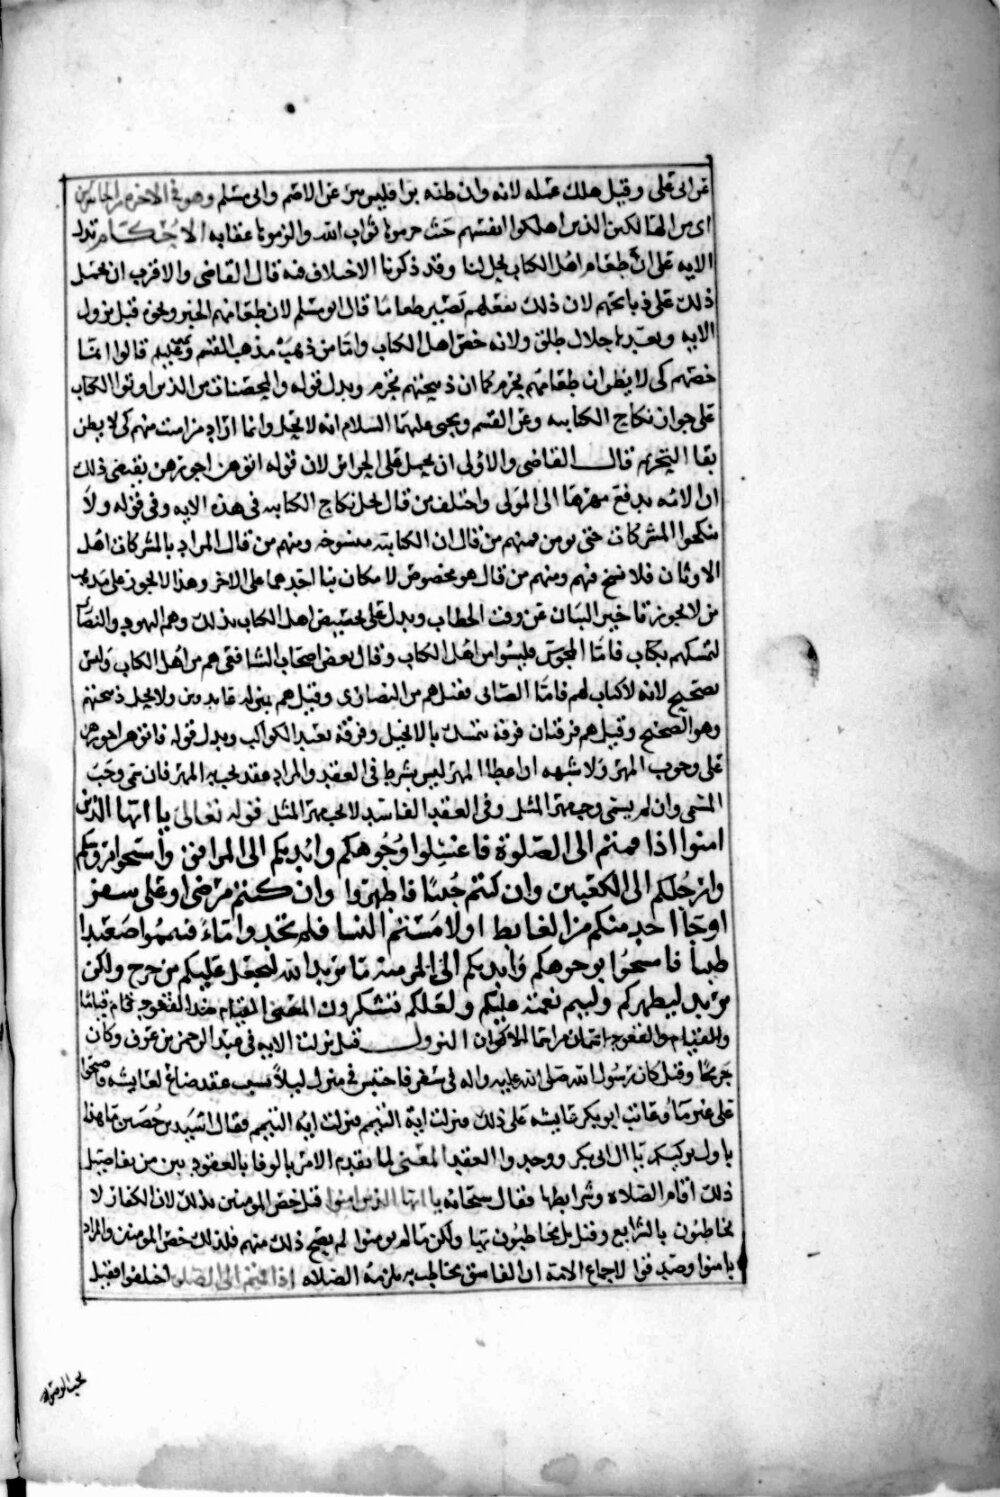 عن ابي علي وقيل هلك عمله لانه وان ظنه برا فليس ببر عن الاصم وابي مسلم وهو في الاخرة من الخاسرين
اي من الهالكين الذين اهلكوا انفسهم حيث حرموها ثواب الله والزموها عقابه الاحكام تدل
الايه على ان طعام اهل الكتاب يحل لنا وقد ذكرنا الاختلاف فيه قال القاضي والاقرب ان يحمل
ذلك على ذبائحهم لان ذلك بفعلهم تصير طعاما قال ابو مسلم لان طعامهم الخبز ونحوه قبل نزول
الايه وبعدها حلال طلق ولانه خص اهل الكتاب واما من ذهب مذهب القسم قالوا انما
خصهم كي لا يظن ان طعامهم يحرم كما ان ذبيحتهم تحرم ويدل قوله والمحصنات من الذين اوتوا الكتاب
على جواز نكاح الكتابيه وعن القسم ويحيى عليهما السلام انه لا يحل وانما اراد من امنت منهم كي لا يظن
بقا التحريم قال القاضي والاولى ان يحمل على الحرائر لان قوله اتوهن اجورهن يقتضي ذلك
اذ الامه يدفع مهرها الى المولى واختلف من قال يحل نكاح الكتابيه في هذه الايه وفي قوله ولا
تنكحوا المشركات حتى يومن فمنهم من قال ان الكتابيه منسوخه ومنهم من قال المراد بالمشركات اهل
الاوثان فلا نسخ فيهم ومنهم من قال هو مخصوص لامكان بنا احدهما على الاخر وهذا لا يجوز على مذهب
من لا يجوز تاخير البيان عن وقت الخطاب ويدل على تخصيص اهل الكتاب بذلك وهم اليهود والنصارى
لتمسكهم بكتاب فاما المجوس فليسوا من اهل الكتاب وقال بعض اصحاب الشافعي هم من اهل الكتاب وليس
بصحيح لانه لا كتاب لهم فاما الصابي فقيل هم من النصارى وقيل هم بمنزلة عابد وثن ولا يحل ذبيحتهم
وهو الصحيح وقيل هم فرقتان فرقة تتمسك بالانجيل وفرقة تعبد الكواكب ويدل قوله فاتوهن اجورهن
على وجوب المهر ولا شبهه ان اعطا المهر ليس بشرط في العقد والمراد عقد يجب به المهر فان سمى وجب
المسمى وان لم يسمى وجب مهر المثل وفي العقد الفاسد لا يجب مهر المثل قوله تعالى يا ايها الذين
امنوا اذا قمتم الى الصلوة فاغسلوا وجوهكم وايديكم الى المرافق وامسحوا بروسكم
وارجلكم الى الكعبين وان كنتم جنبا فاطهروا وان كنتم مرضى او على سفر
او جا احد منكم من الغايط او لامستم النسا فلم تجدوا ماء فتيمموا صعيدا
طيبا فامسحوا بوجوهكم وايديكم منه ما يريد الله ليجعل عليكم من حرج ولكن
يريد ليطهركم وليتم نعمته عليكم ولعلكم تشكرون المعنى القيام ضد القعود قام قياما
والقيام والقعود اسمان من اسما الاكوان النزول قيل نزلت الايه في عبد الرحمن بن عوف وكان
جريحا وقيل كان رسول الله صلى الله عليه واله في سفر فاحتبس في منزل ليلا بسبب عقد ضاع لعايشه فاصبحوا
على غير ما وعاتب ابو بكر عايشه على ذلك فنزلت اية التيمم فقال اسيد بن حضير ما هذا
باول بركتكم يا ال ابي بكر ووجدوا العقد المعنى لما تقدم الامر بالوفا بالعقود بين من تفاصيل
ذلك اقام الصلاه وشرايطها فقال سبحانه يا ايها الذين امنوا قيل خص المومنين بذلك لان الكفار لا
يخاطبون بالشرايع وقيل بل يخاطبون بها ولكن ما لم يومنوا لم يصح ذلك منهم فلذلك خص المومنين والمراد
يا منوا وصدقوا لاجماع الامه ان الفاسق يخاطب به يلزمه الصلاه اذا قمتم الى الصلوه اختلفوا فقيل